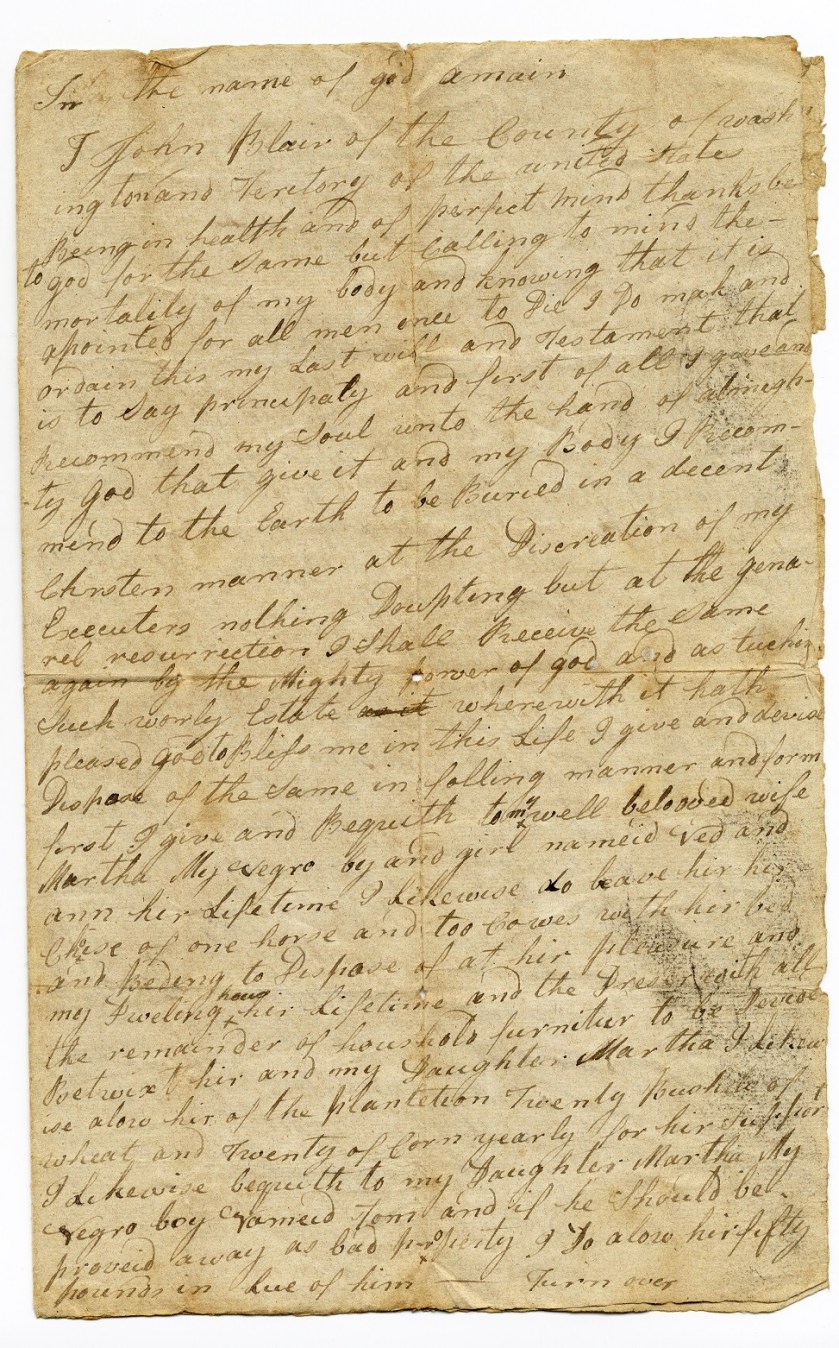 In the name of god amain
I John Blair of the County of wash
ington and Teritory of the united State
Being in health and of perfect mind thanks be
to god for the same but Calling to mind the
mortality of my body and knowing that it is
apointed for all men once to Die I Do mak and
ordain this my Last will and Testament that
is to Say principaly and first of all I give and
Recommend my Soul unto the hand of almigh-
ty god that give it and my Body I Recom-
mend to the Earth to be Buried in a decent
Chrsten manner at the Discreation of my
Executers nothing Doupting but at the gena-
rel resurrection I Shall Receive the Same
again by the Mighty power of god and as tuching
Such worly Estate as it wherewith it hath
pleased god to Bliss me in this Life I give and devise
Dispose of the Same in folling manner and form
first I give and Bequith to my well beloved wife
Martha My Negro by and girl nameid Ned and
ann hir Lifetime I Likewise do leave hir hir
Choise of one horse and too Cowes with hir bed
and Beding to Dispose of at hir pleasure and
my Dweling hous hir Lifetime and the Dreser with all
the remainder of houshold furnitur to be Devide
Betwixt hir and my Daughter Martha I Likew
ise alow hir of the plantetion Twenty Bushls of
wheat and Twenty of Corn yearly for hir Support
I Likewise bequith to my Daughter Martha My
Negro boy Nameid Tom and if he Should be
proveid away as bad property I Do alow hir fifty
pounds in Lue of him — Turn over